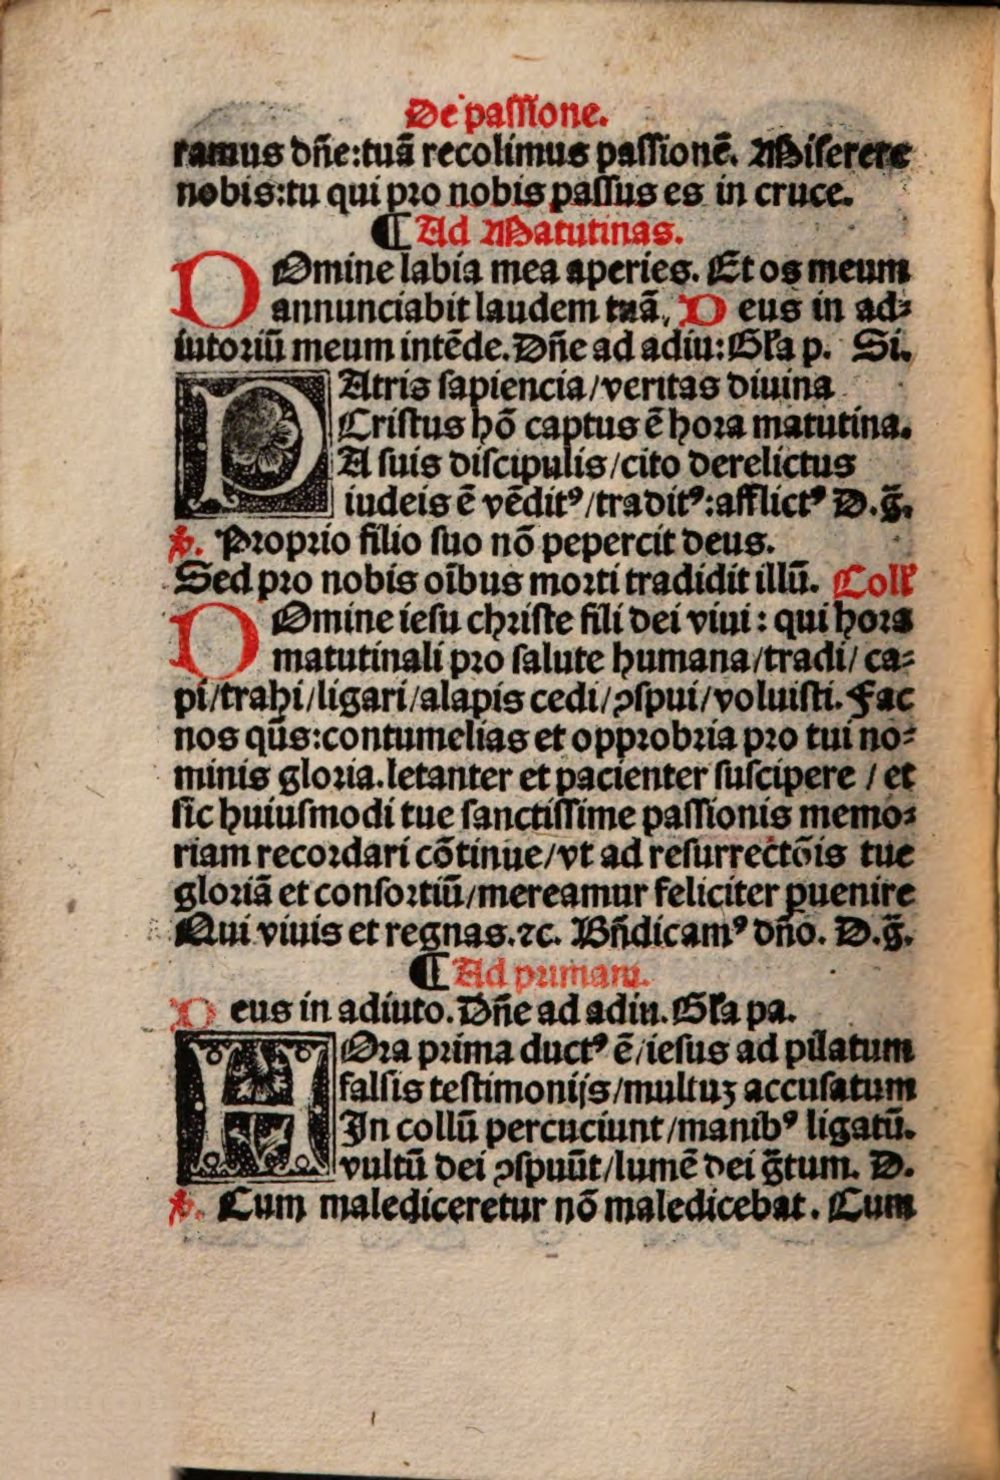 De passione.
ramus dñe:tuã recolimus passionẽ. Miserere
nobis:tu qui pro nobis passus es in cruce.
¶ Ad Matutinas.
DOmine labia mea aperies. Et os meum
annunciabit laudem tuã, Deus in ad⸗
iutoriũ meum intẽde. Dñe ad adiu: Gľa p. Si.
PAtris sapiencia/veritas diuina
Cristus hõ captus ẽ hora matutina.
A suis discipulis/cito derelictus
iudeis ẽ vẽditꝰ/traditꝰ:afflictꝰ D.g̃.
℣. Proprio filio suo nõ pepercit deus.
Sed pro nobis oĩbus morti tradidit illũ. Coll'
DOmine iesu christe fili dei viui: qui hora
matutinali pro salute humana/tradi/ ca⸗
pi/trahi/ligari/alapis cedi/ꝯspui/voluisti. Fac
nos qũs:contumelias et opprobria pro tui no⸗
minis gloria.letanter et pacienter suscipere / et
sic huiusmodi tue sanctissime passionis memo⸗
riam recordari cõtinue/vt ad resurrectõis tue
gloriã et consortiũ/mereamur feliciter ꝑuenire
Qui viuis et regnas.⁊c. Bñdicamꝰ dño. D.g̃.
¶ Ad primam.
Deus in adiuto. Dñe ad adiu. Gľa pa.
HOra prima ductꝰ ẽ/iesus ad pilatum
falsis testimonijs/multuꝫ accusatum
In collũ percuciunt/manibꝰ ligatũ.
vultũ dei ꝯspuũt/lumẽ dei g̃tum. D.
℣. Cum malediceretur nõ maledicebat. Cum